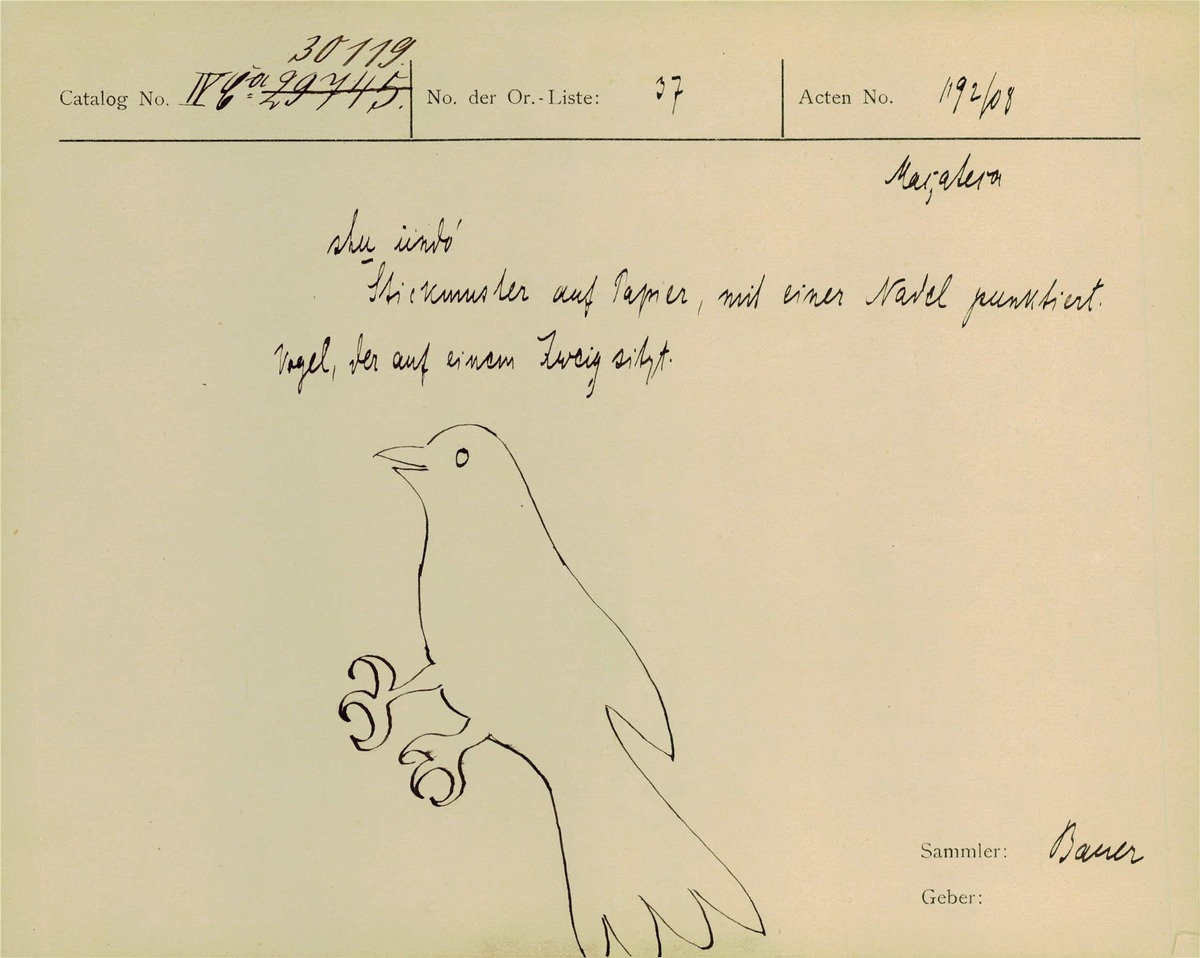 30119.
Catalog No. IV Ca 29745. No. der Or.-Liste: 37 Acten No. 1192/08
Mazateca
shu̲ iindó
Stickmuster auf Papier, mit einer Nadel punktiert.
Vogel, der auf einem Zweig sitzt.
Sammler: Bauer
Geber: